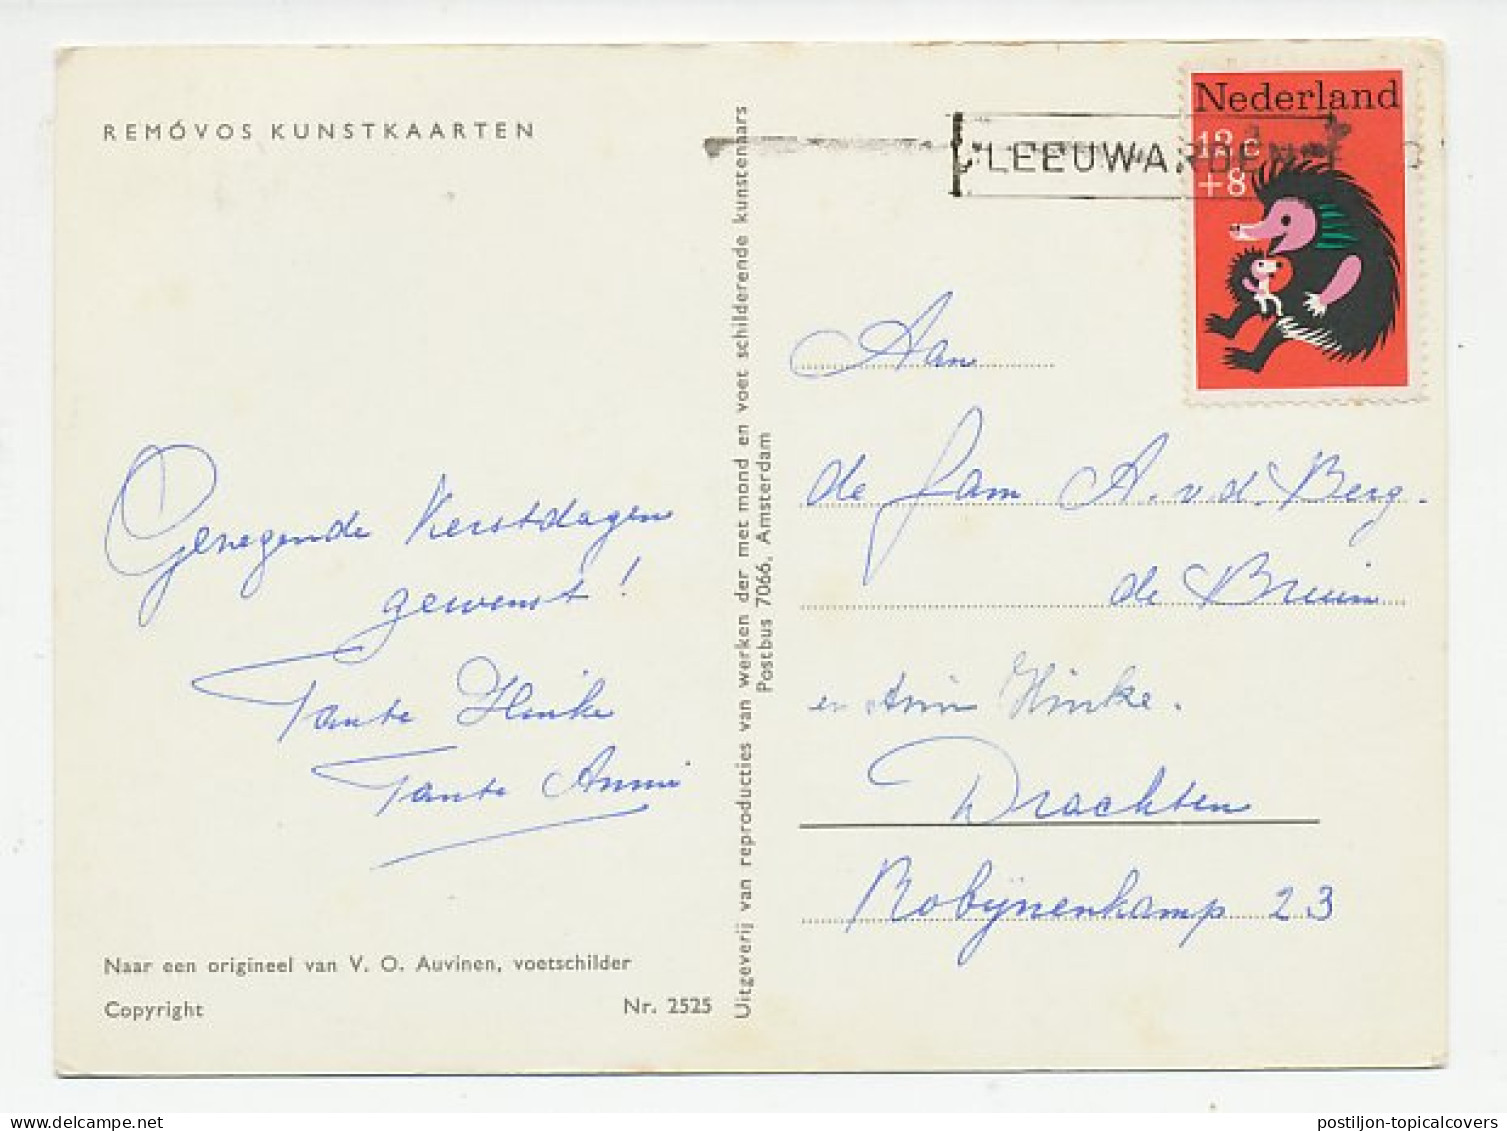 REMÓVOS KUNSTKAARTEN
Nederland
12 c
+8
LEEUWARDEN
Gezegende Kerstdagen
gewenst!
Tante Hinke
Tante Anni
Naar een origineel van V. O. Auvinen, voetschilder
Copyright
Nr. 2525
Uitgeverij van reproducties van werken der met mond en voet schilderende kunstenaars
Postbus 7066, Amsterdam
Aan
de fam A. v. d. Berg.
de Bruin
en Hinke.
Drachten
Robijnenkamp 23
postiljon-topicalcovers